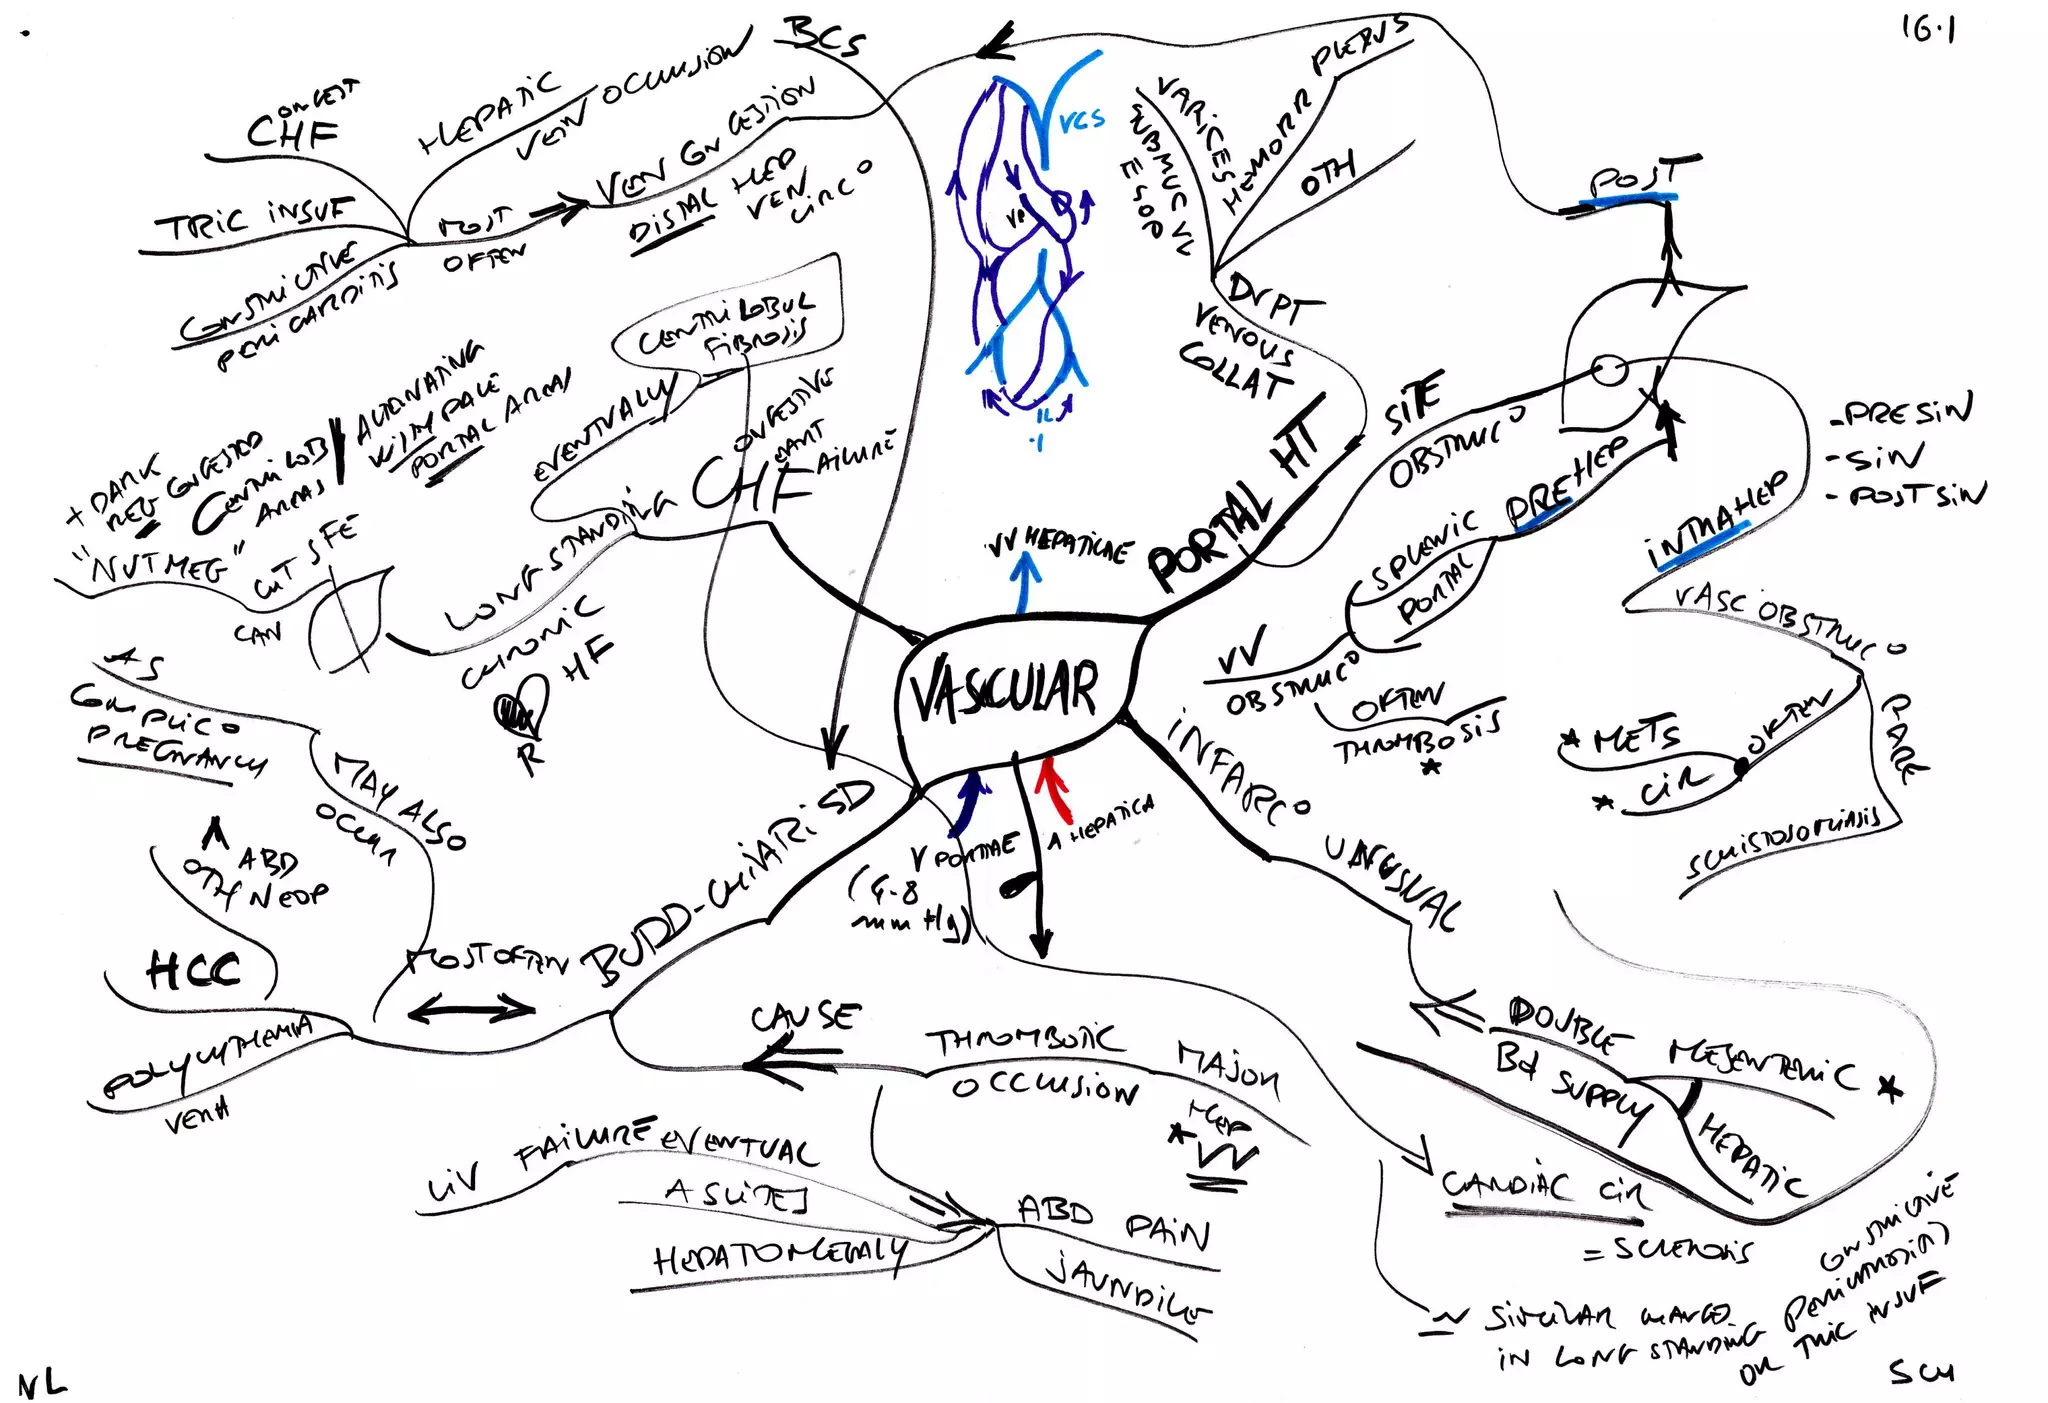 16.1
BCS
HEPATIC
VEIN OCCLUSION
CONGEST
CHF
TRIC INSUF
CONSTRICTIVE
PERICARDITIS
MOST
OFTEN
VEN CONGESTION
DISTAL HEP
VEN
CIRCO
VCS
VP
VARICES
SUBMUC VV
ESOP
HEMORR PLEXUS
OTH
DVPT
VENOUS
COLLAT
POST
SITE
OBSTRUCO
PREHEP
- PRESIN
- SIN
- POSTSIN
INTRAHEP
PORTAL HT
SPLENIC
PORTAL
VV
OBSTRUCO
OFTEN
THROMBOSIS
*
VASC OBSTRUCO
RARE
OFTEN
* METS
* CIR
SCHISTOSOMIASIS
CENTRILOBUL
FIBROSIS
EVENTUALLY
CONGESTIVE
HEART
CHF FAILURE
LONG STANDING
CHRONIC
HF
R
+ DARK
RED CONGESTED
CENTRILOB
AREAS
ALTERNATING
WITH PALE
PORTAL AREAS
"NUTMEG"
CUT SFE
CAN
VV HEPATICAE
VASCULAR
V PORTAE
(4-8
mm Hg)
A HEPATICA
INFARCO
UNUSUAL
DOUBLE
Bd SUPPLY
MESENTERIC *
HEPATIC
BUDD-CHIARI SD
MOST OFTEN
MAY ALSO
OCCUR
AS
COMPLICO
PREGNANCY
ABD
OTH NEOP
HCC
POLYCYTHEMIA
VERA
CAUSE
THROMBOTIC
OCCLUSION
MAJOR
HEP
* VV
LIV FAILURE EVENTUAL
ASCITES
HEPATOMEGALY
ABD PAIN
JAUNDICE
CARDIAC CIR
= SCLEROSIS
SIMILAR
IN LONG STANDING
CONSTRICTIVE
OR TRIC INSUF
NL
SCM